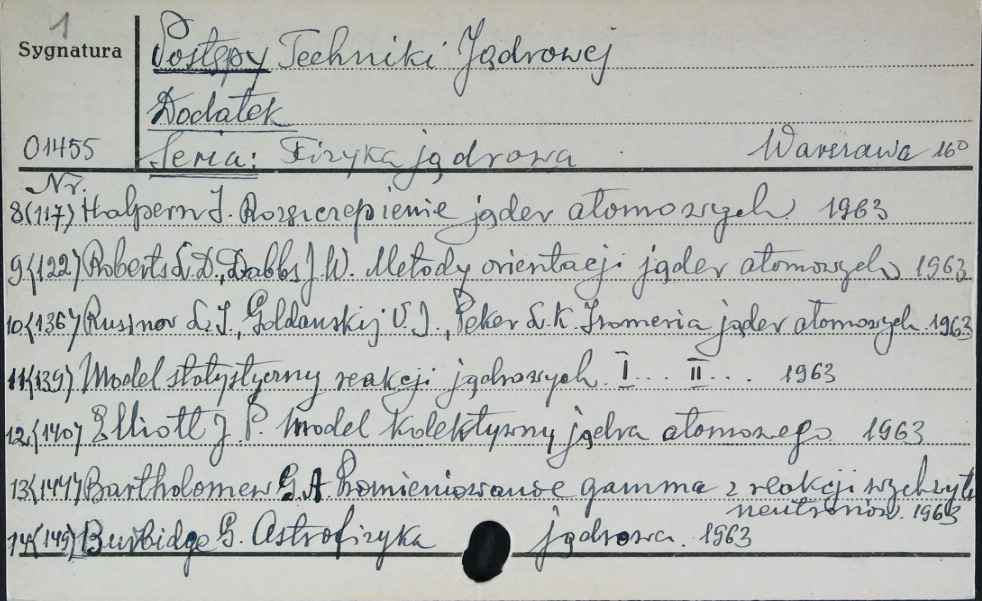 1
Sygnatura
Postępy Techniki Jądrowej
Dodatek
01455
Seria: Fizyka jądrowa Warszawa 16°
Nr.
8(117) Halpern I. Rozszczepienie jąder atomowych 1963
9(122) Roberts L.D., Dabbs J.W. Metody orientacji jąder atomowych 1963
10(136) Rusinov L.I., Goldanskij V.I., Peker L.K. Izomeria jąder atomowych 1963
11(139) Model statystyczny reakcji jądrowych. I... II... 1963
12(140) Elliott J.P. Model kolektywny jądra atomowego 1963
Bartholomew G.A Promieniowanie gamma z reakcji wychwytu
neutronów. 1963
14(149) Burbidge G. Astrofizyka jądrowa. 1963